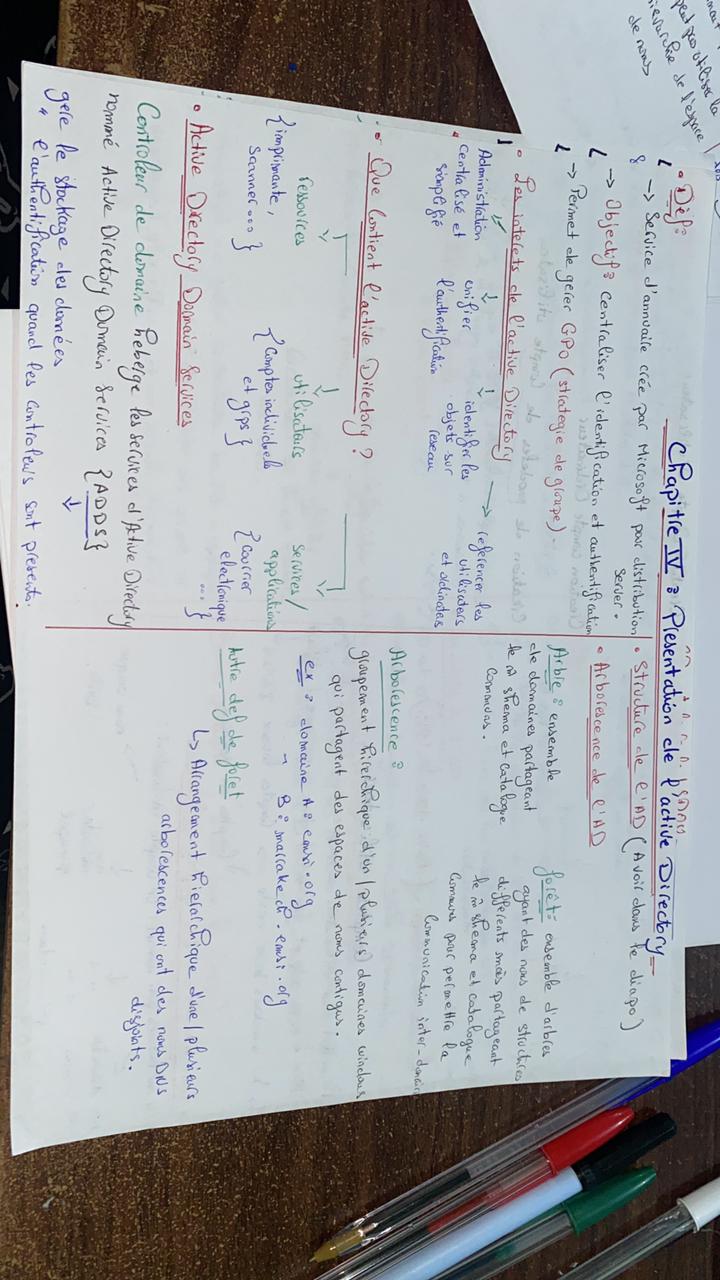 peut pas utiliser la
hierarchie de l'espace
de noms
Chapitre IV : Presentation de l'active Directory
• Def:
→ Service d'annuaire crée par Microsoft pour distribution
server.
→ Objectif: centraliser l'identification et authentification
→ Permet de gerer GPO (strategie de groupe).
• Les interets de l'active Directory
Administration
centralisé et
simplifié
unifier
l'authentification
identifier les
objets sur
reseau
referencer les
utilisaters
et ordinatas
• Que Contient l'active Directory ?
ressources
{imprimante,
Scanner... }
utilisateurs
{Comptes individuels
et grps}
services/
applications
{Courrier
electronique
... }
• Active Directory Domain Services
Controleur de domaine heberge les services d'Active Directory
nommé Active Directory Domain Services {ADDS}
gere le stockage des données
" l'authentification quand les controleurs sont presents.
• Structure de l'AD (Avoir dans le diapo)
• Arborescence de l'AD
Arbre : ensemble
de domaines partageant
le m̂ shema et catalogue
Communs.
forêt: ensemble d'arbres
ayant des noms de structures
différents mais partageant
le m̂ shema et catalogue
Communs pour permettre la
Communication inter-domaine
Arborescence :
groupement hierchique d'un/plusiers domaines windows
qui partagent des espaces de noms contigus.
ex : domaine A : emsi.org
¬ B : marrakech.emsi.org
Autre def de foret
↳ Arrangement hierarchique d'une/plusieurs
arborescences qui ont des noms DNS
disjoints.